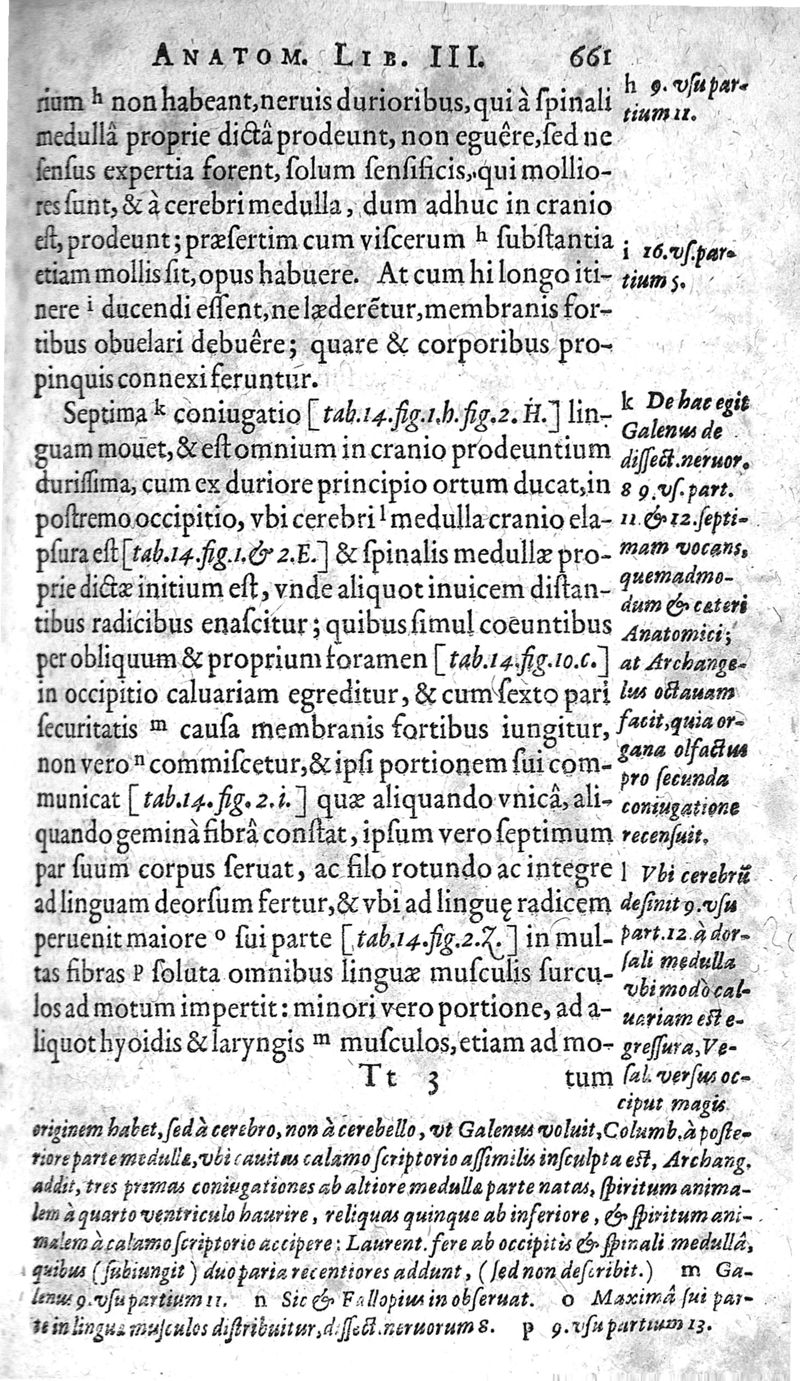 ANATOM. LIB. III. 661
rium h non habeant, neruis durioribus, qui à ſpinali
medullâ proprie dictâ prodeunt, non eguêre, ſed ne
ſenſus expertia forent, ſolum ſenſificis, qui mollio-
res ſunt, & à cerebri medulla, dum adhuc in cranio
eſt, prodeunt; præſertim cum viſcerum h ſubſtantia
etiam mollis ſit, opus habuere. At cum hi longo iti-
nere i ducendi eſſent, ne læderẽtur, membranis for-
tibus obuelari debuêre; quare & corporibus pro-
pinquis connexi feruntur.
Septima k coniugatio [tab.14.fig.1.h.fig.2. H.] lin-
guam mouet, & eſt omnium in cranio prodeuntium
duriſſima, cum ex duriore principio ortum ducat, in
poſtremo occipitio, vbi cerebri l medulla cranio ela-
pſura eſt [tab.14.fig.1.& 2.E.] & ſpinalis medullæ pro-
prie dictæ initium eſt, vnde aliquot inuicem diſtan-
tibus radicibus enaſcitur; quibus ſimul coëuntibus
per obliquum & proprium foramen [tab.14.fig.10.c.]
in occipitio caluariam egreditur, & cum ſexto pari
ſecuritatis m cauſa membranis fortibus iungitur,
non vero n commiſcetur, & ipſi portionem ſui com-
municat [tab.14.fig.2.i.] quæ aliquando vnicâ, ali-
quando geminâ fibrâ conſtat, ipſum vero ſeptimum
par ſuum corpus ſeruat, ac filo rotundo ac integre
ad linguam deorſum fertur, & vbi ad linguę radicem
peruenit maiore o ſui parte [tab.14.fig.2.Z.] in mul-
tas fibras p ſoluta omnibus linguæ muſculis ſurcu-
los ad motum impertit: minori vero portione, ad a-
liquot hyoidis & laryngis m muſculos, etiam ad mo-
Tt 3 tum
h 9. vſu par-
tium 11.
i 16.vſ.par-
tium 5.
k De hac egit
Galenus de
diſſect.neruor.
8 9.vſ.part.
11 & 12.ſepti-
mam vocans,
quemadmo-
dum & cæteri
Anatomici;
at Archange-
lus octauam
facit, quia or-
gana olfactus
pro ſecunda
coniugatione
recenſuit.
l Vbi cerebrũ
deſinit 9.vſu
part.12 à dor-
ſali medulla
vbi modò cal-
uariam eſt e-
greſſura, Ve-
ſal. verſus oc-
ciput magis
originem habet, ſed à cerebro, non à cerebello, vt Galenus voluit, Columb. à poſte-
riore parte medullæ, vbi cauitas calamo ſcriptorio aſſimilis inſculpta eſt, Archang.
addit, tres primas coniugationes ab altiore medulla parte natas, ſpiritum anima-
lem à quarto ventriculo haurire, reliquas quinque ab inferiore, & ſpiritum ani-
malem à calamo ſcriptorio accipere: Laurent. fere ab occipitis & ſpinali medullâ,
quibus (ſubiungit) duo paria recentiores addunt, (ſed non deſcribit.) m Ga-
lenus 9.vſu partium 11. n Sic & Fallopius in obſeruat. o Maximâ ſui par-
te in linguæ muſculos diſtribuitur, diſſect.neruorum 8. p 9.vſu partium 13.